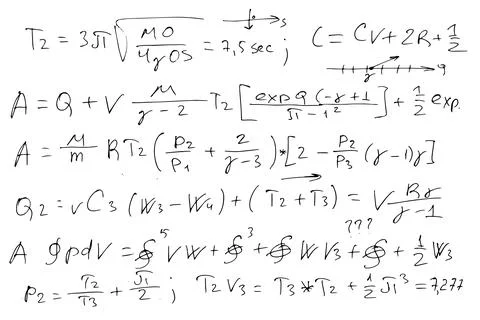 T2 = 3π √(MO / 4γOS) = 7,5 sec ; C = CV + 2R + 1/2
A = Q + V M/(γ-2) T2 [exp Q (-γ+1) / (π-1²)] + 1/2 exp.
A = M/m RT2 (P2/P1 + 2/(γ-3)) * [2 - P2/P3 (γ-1)γ]
Q2 = νC3 (W3 - W4) + (T2 + T3) = V Rγ/(γ-1)
A ∮pdV = ∮⁵ VW + ∮³ + ∮ W V3 + ∮ + 1/2 W3 ???
P2 = T2/T3 + π/2 ; T2 V3 = T3 * T2 + 1/2 π³ = 7,277